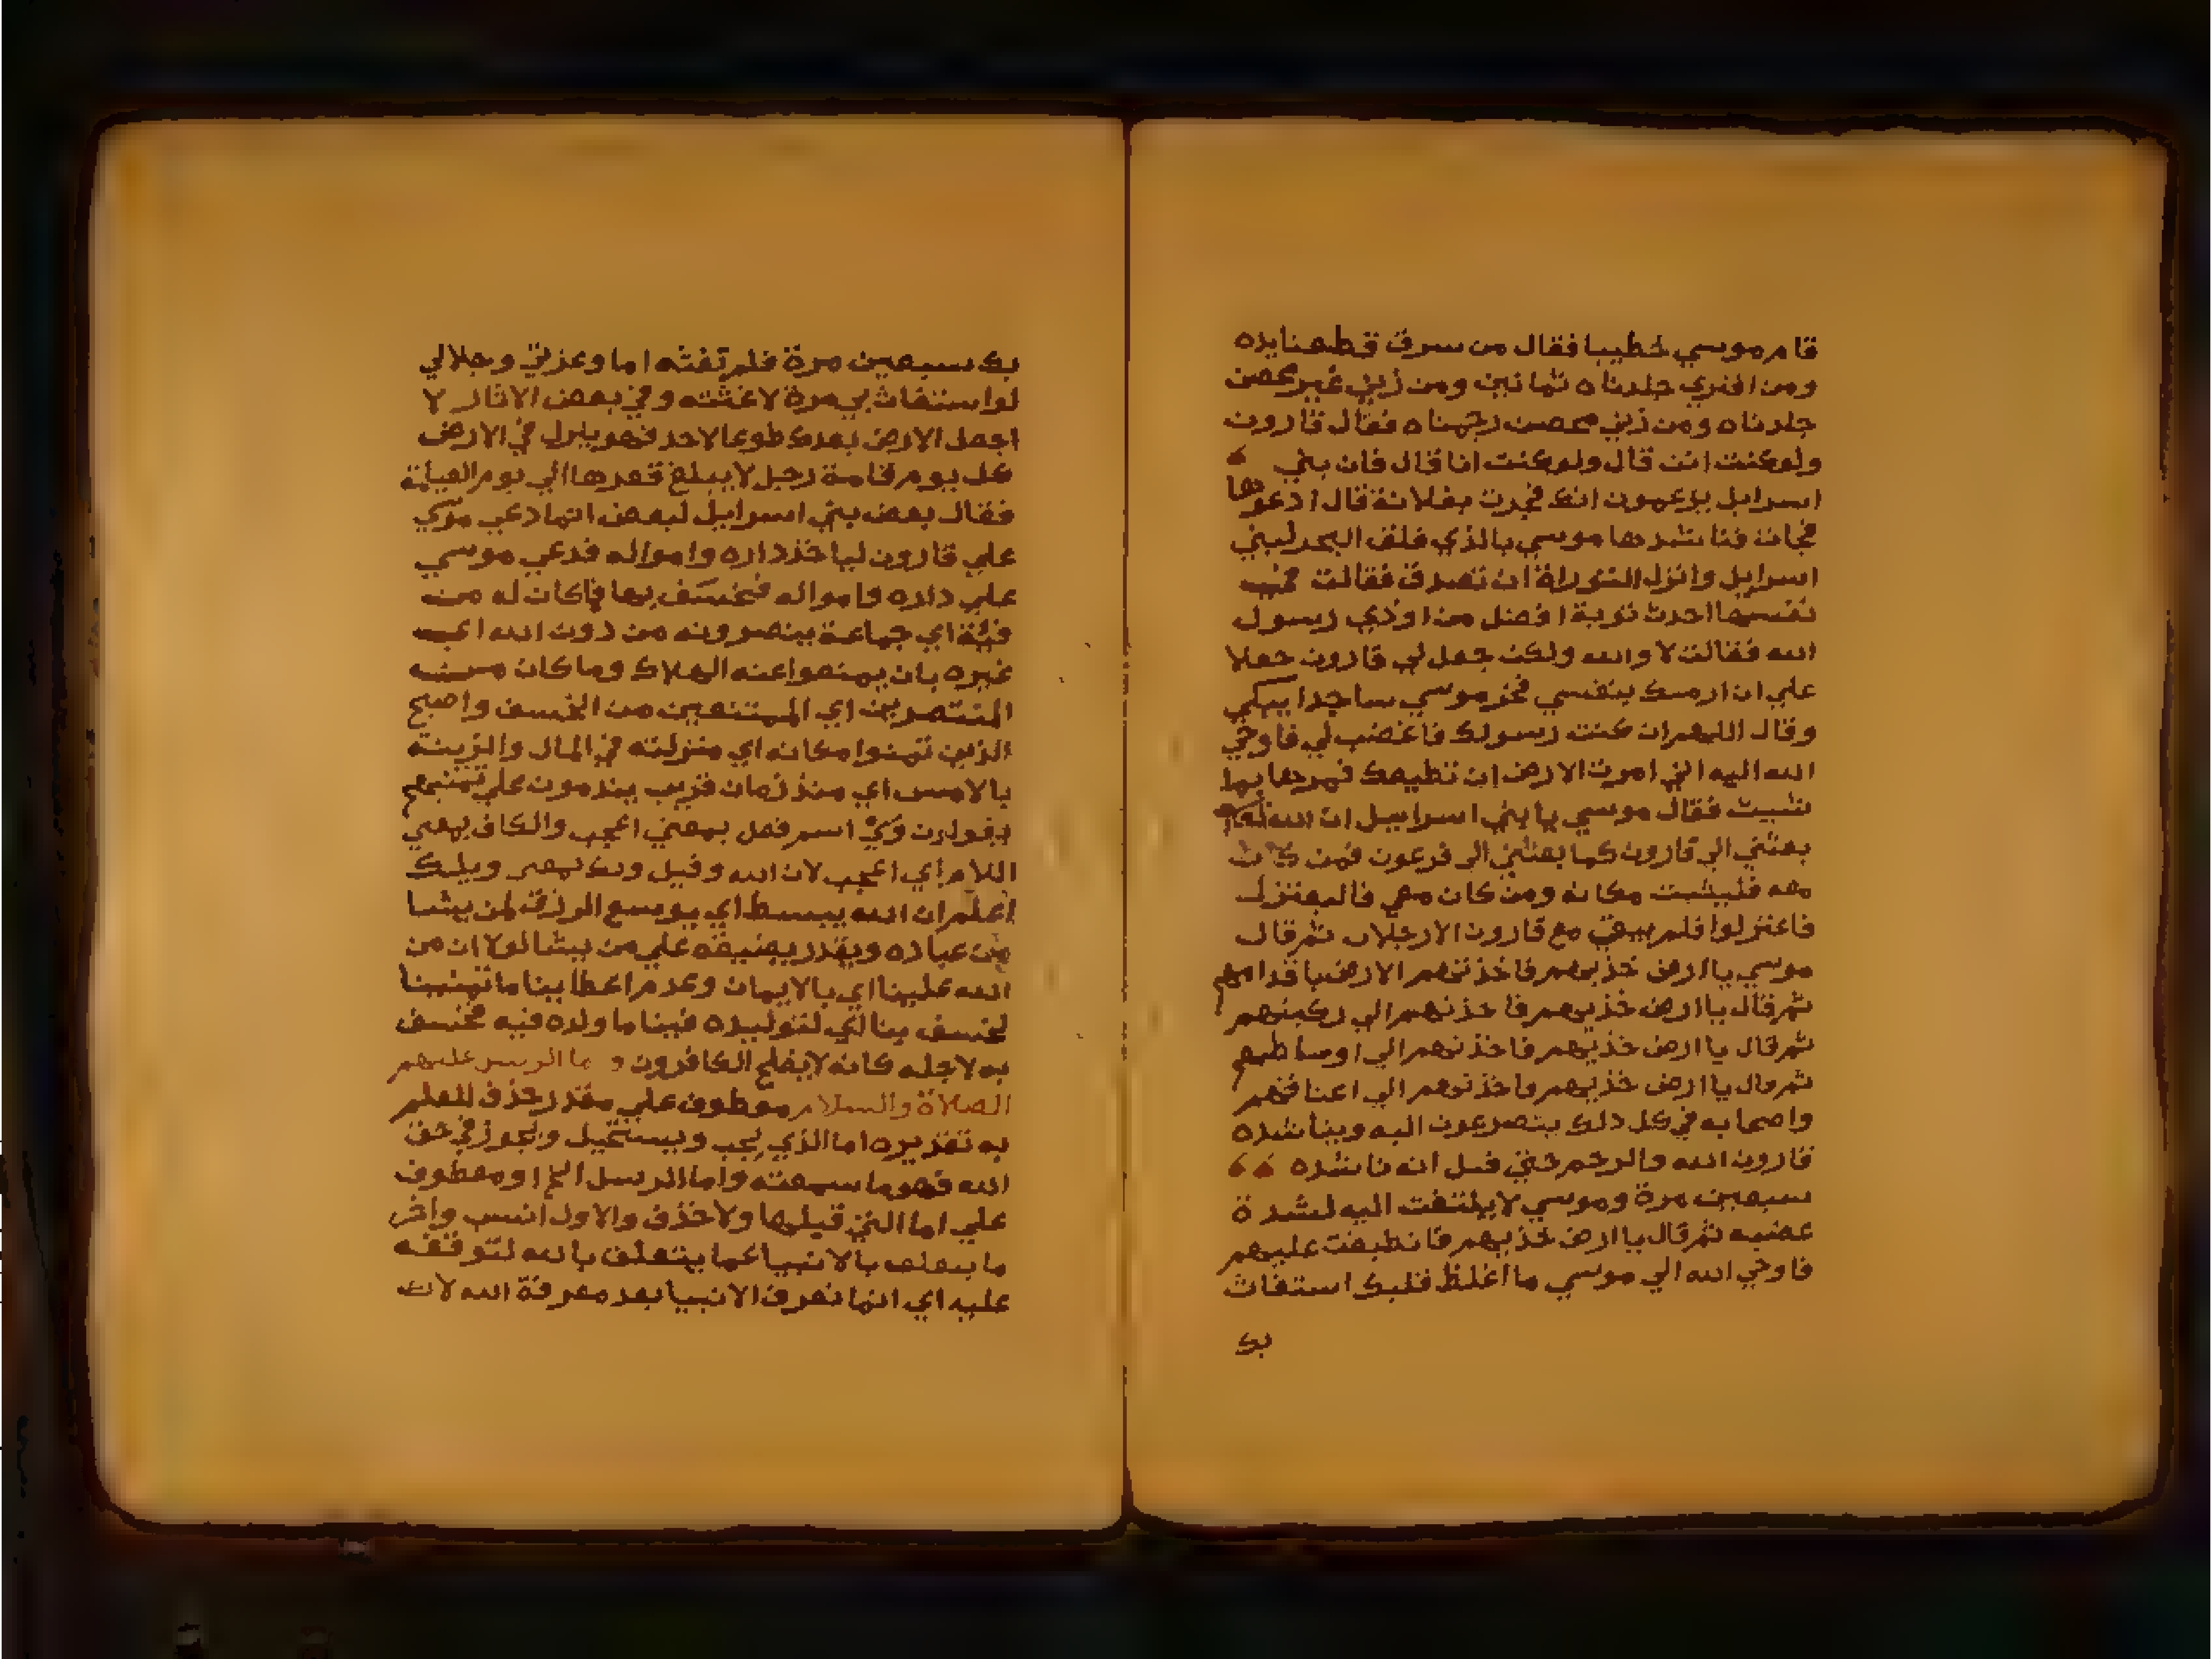 قام موسي خطيبا فقال من سرق قطعنا يده
ومن افتري جلدناه ثمانين ومن زني غير محصن
جلدناه ومن زني محصن رجمناه فقال قارون
ولو كنت انت قال ولو كنت انا قال فان بني
اسرايل يزعمون انك فجرت بفلانة قال ادعوها
فجات فناشدها موسي بالذي فلق البحر لبني
اسرايل وانزل التوراة ان تصدق فقالت في
نفسها احدث توبة افضل من اوذي رسول
الله فقالت لا والله ولكن جعل لي قارون جعلا
علي ان ارميك بنفسي فخر موسي ساجدا يبكي
وقال اللهم ان كنت رسولك فاغضب لي فاوحي
الله اليه اني امرت الارض ان تطيعك فمرها بما
شيت فقال موسي يا بني اسراييل ان الله
بعثني الي قارون كما بعثني الي فرعون فمن كان
معه فليثبت مكانه ومن كان معي فاليعتزل
فاعتزلوا فلم يبقي مع قارون الا رجلان ثم قال
موسي يا ارض خذيهم فاخذتهم الارض باقدامهم
ثم قال يا ارض خذيهم فاخذتهم الي ركبتهم
ثم قال يا ارض خذيهم فاخذتهم الي اوساطهم
ثم قال يا ارض خذيهم فاخذتهم الي اعناقهم
واصحابه في كل ذلك يتضرعون اليه ويناشده
قارون الله والرحم حتي قيل انه ناشده
سبعين مرة وموسي لا يلتفت اليه لشدة
غضبه ثم قال يا ارض خذيهم فانطبقت عليهم
فاوحي الله الي موسي ما اغلظ قلبك استغاث
بك
بك سبعين مرة فلم تغثه اما وعزتي وجلالي
لو استغاث بي مرة لاغثته وفي بعض الاثار لا
اجعل الارض بعدك طوعا لاحد فهو ينزل في الارض
كل يوم قامة رجل لا يبلغ قعرها الي يوم القيامة
فقال بعض بني اسرايل لبعض انما دعي موسي
علي قارون لياخذ داره وامواله فدعي موسي
علي داره وامواله فخسف بها فما كان له من
فئة اي جماعة ينصرونه من دون الله اي
غيره بان يمنعوا عنه الهلاك وما كان من
المنتصرين اي الممتنعين من الخسف واصبح
الذين تمنوا مكانه اي منزلته في المال والزينة
بالامس اي منذ زمان قريب يندمون علي تمنيهم
يقولون وي اسم فعل بمعني اعجب والكاف بمعني
اللام اي اعجب لان الله وقيل ويك بمعني ويلك
اعلم ان الله يبسط اي يوسع الرزق لمن يشا
من عباده ويقدر يضيقه علي من يشا لولا ان من
الله علينا اي بالايمان وعدم اعطاينا ما تمنينا
لخسف بنا اي لتوليده فينا ما ولده فيه فخسف
به لاجله كانه لا يفلح الكافرون و اما الرسل عليهم
الصلاة والسلام معطوف علي مقدر حذف للعلم
به تقديره اما الذي يجب ويستحيل ويجوز في حق
الله فهو ما سمعته واما الرسل الخ او معطوف
علي اما التي قبلها ولا حذف والاول انسب واخر
ما يتعلق بالانبيا عما يتعلق بالله لتوقفه
عليه اي انما تعرف الانبيا بعد معرفة الله لان